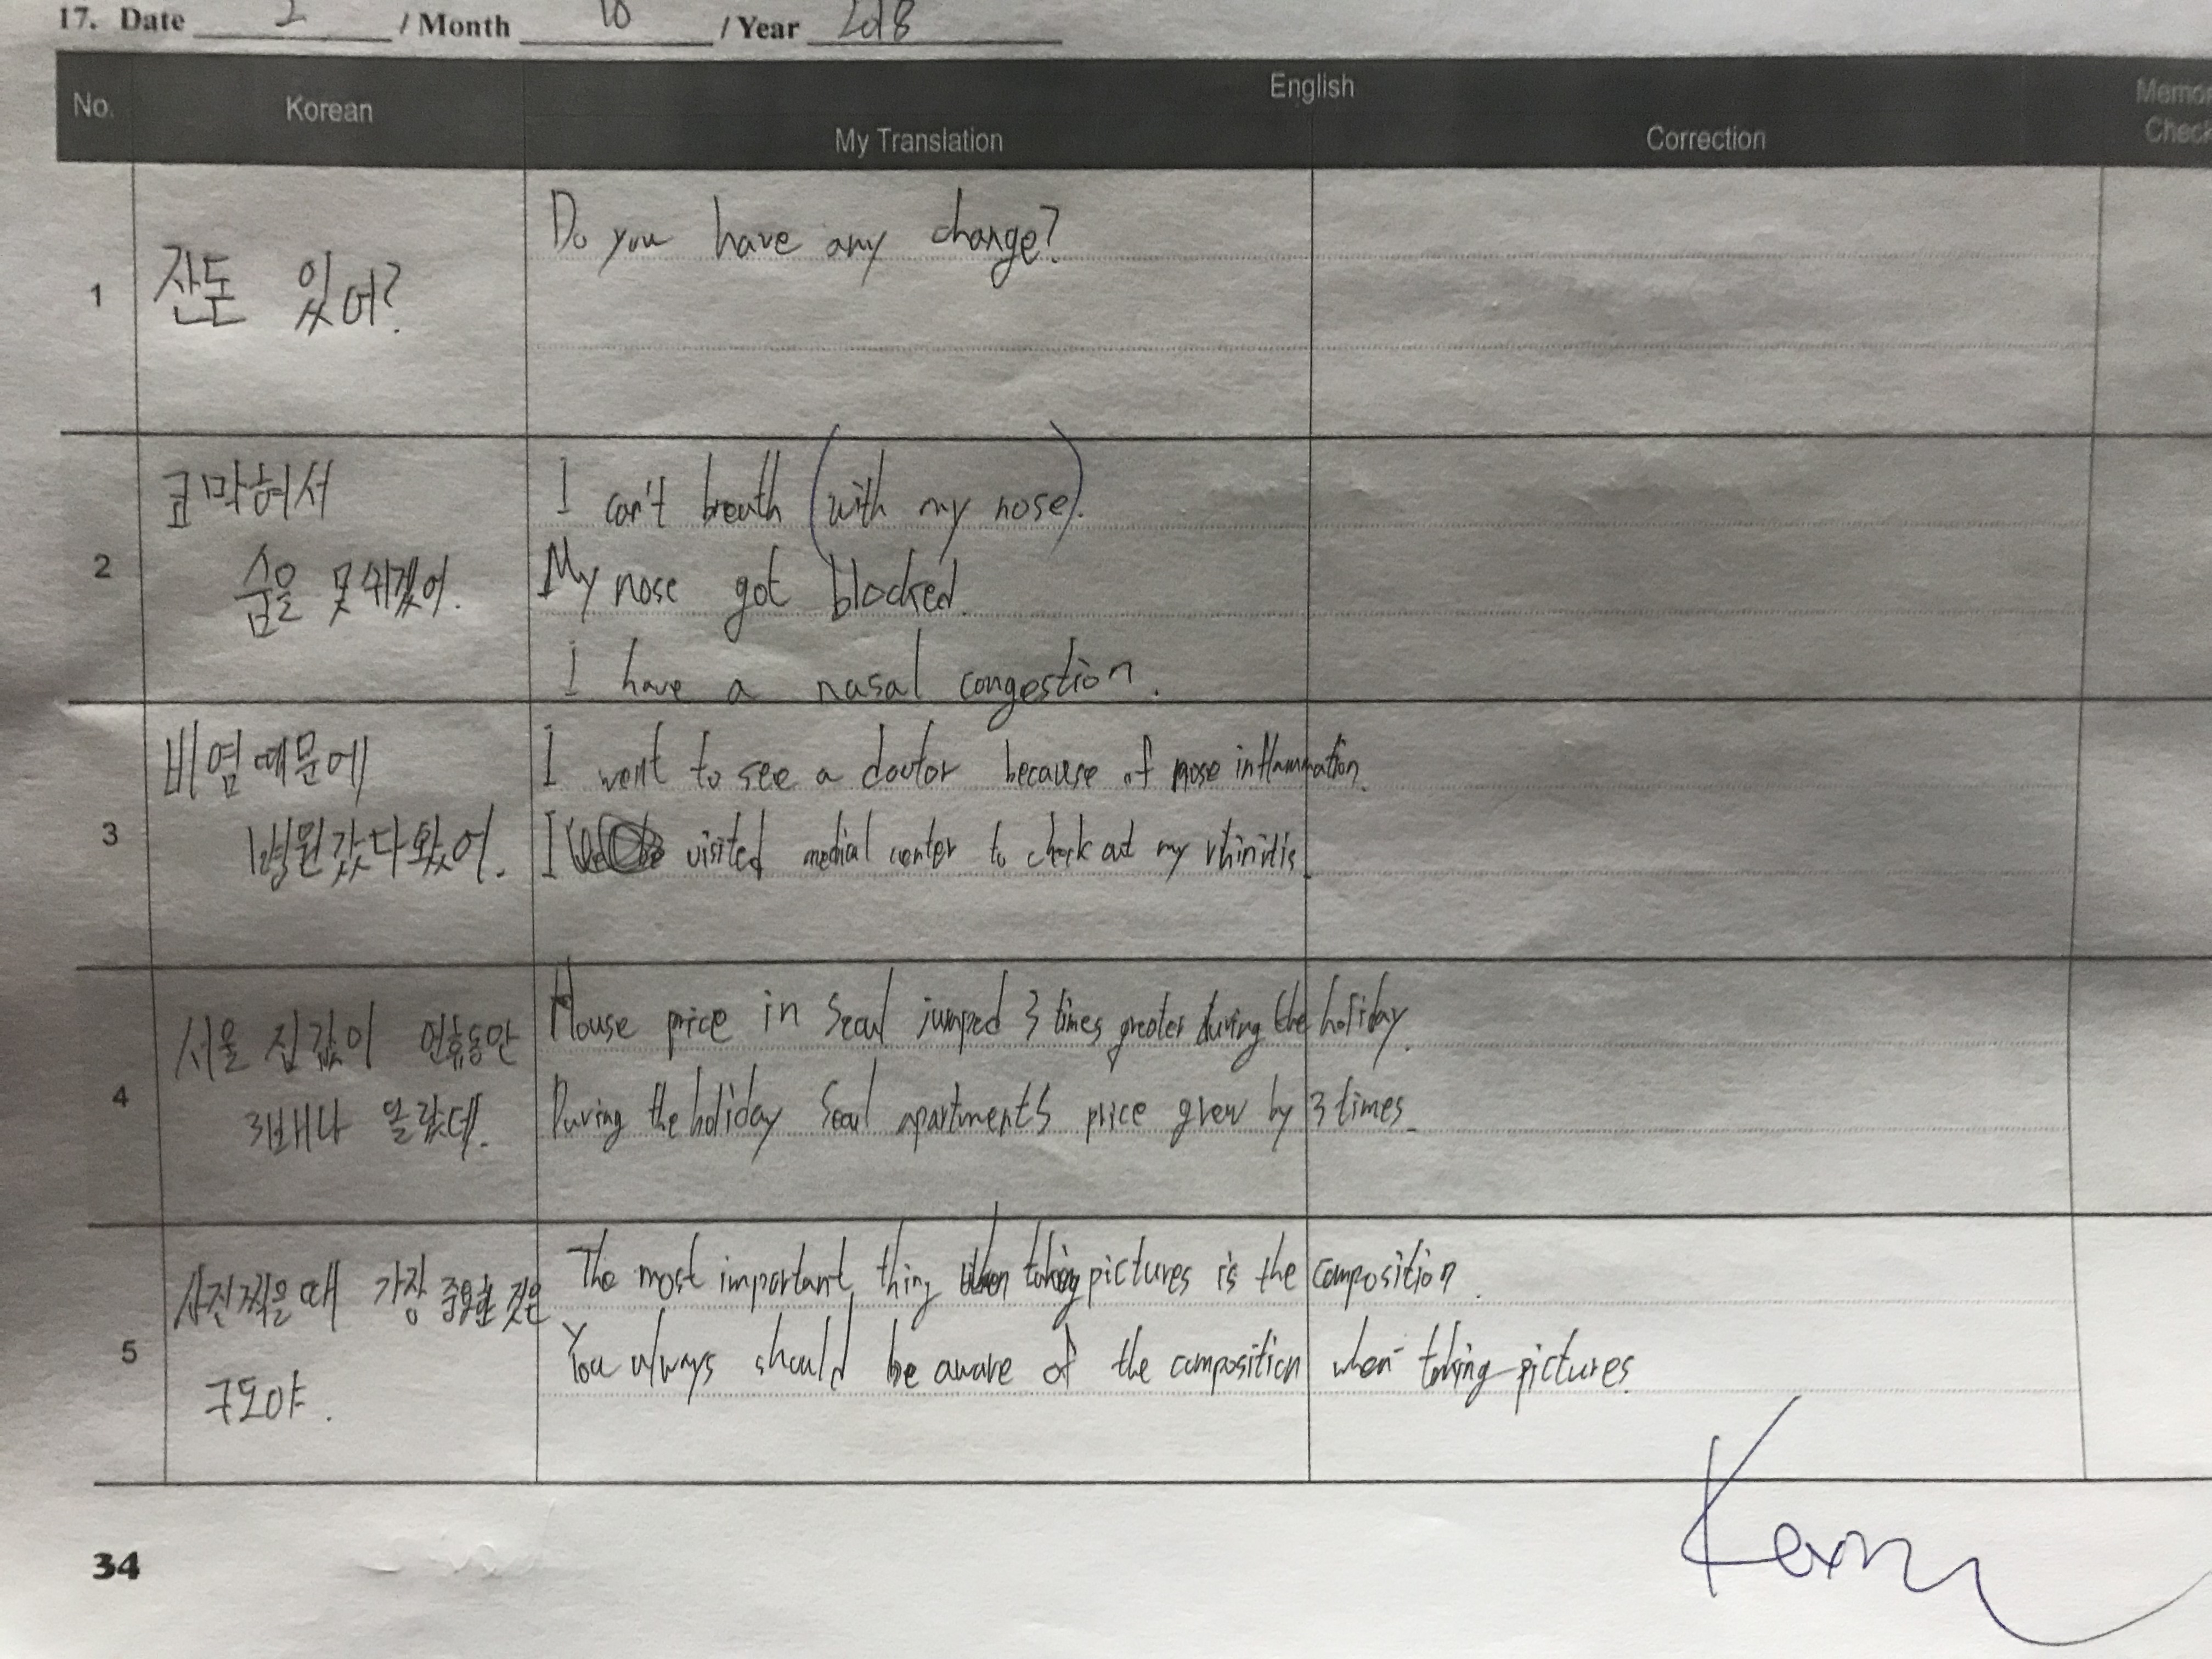 17. Date 2 / Month 10 / Year 2018
No. Korean English Memor Check
My Translation Correction
1 잔돈 있어? Do you have any change?
2 코막혀서 I can't breath (with my nose).
숨을 못쉬겠어. My nose got blocked.
I have a nasal congestion.
3 비염때문에 I went to see a doctor because of nose inflammation.
병원갔다왔어. I visited medical center to check out my rhinitis.
4 서울 집값이 연휴동안 House price in Seoul jumped 3 times greater during the holiday.
3배나 올랐데. During the holiday Seoul apartments price grew by 3 times.
5 사진찍을때 가장 중요한 것은 The most important thing when taking pictures is the composition.
구도야. You always should be aware of the composition when taking pictures.
34